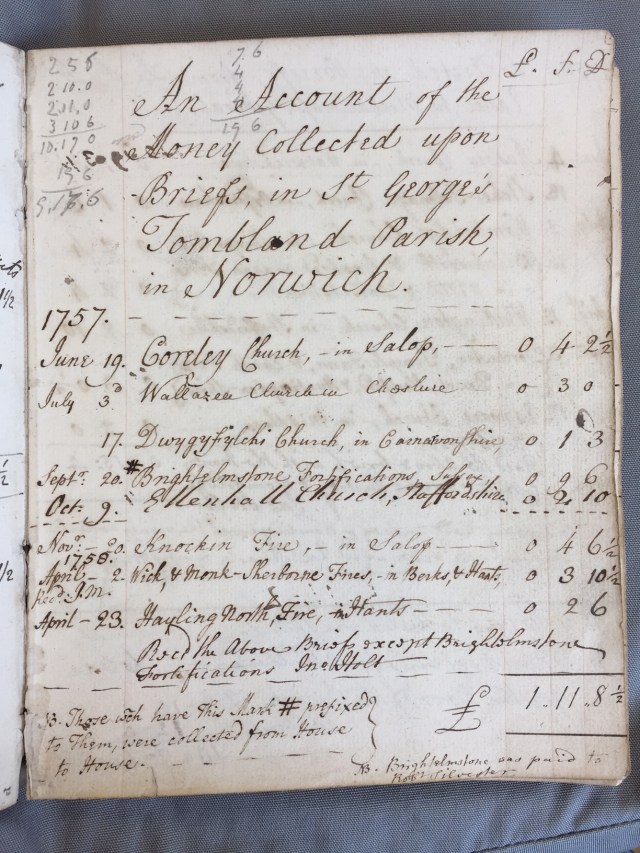 2 5 6
2.10.0
2.11.0
3 10 6
10.17 0
7.6
4
4
19 6
£. s. D
An Account of the
Money Collected upon
Briefs, in St. George's
Tombland Parish,
in Norwich.
1757.
June 19. Coreley Church, - in Salop, 0 4 2½
July 3d Wallazea Church in Cheshire 0 3 0
17. Dwygyfylchi Church, in Carnarvonshire, 0 1 3
Septr. 20. # Brighthelmstone Fortifications, Sussex, 0 9 6
Oct. 9. Ellenhall Church, Staffordshire, 0 2 10
Novr. - 20. Knockin Fire, - in Salop 0 4 6½
1758.
April - 2. Wick, & Monk-Sherborne Fires, - in Berks, & Hants, 0 3 10½
April - 23. Hayling North, Fire, - in Hants - 0 2 6
Recd the Above Briefs except Brighthelmstone
Fortifications Jno Holt
£ 1 .. 11 .. 8½
NB. Those wch have this Mark # prefixed
to Them, were collected from House
to House.
NB. Brighthelmstone was paid to
Robt Silvester